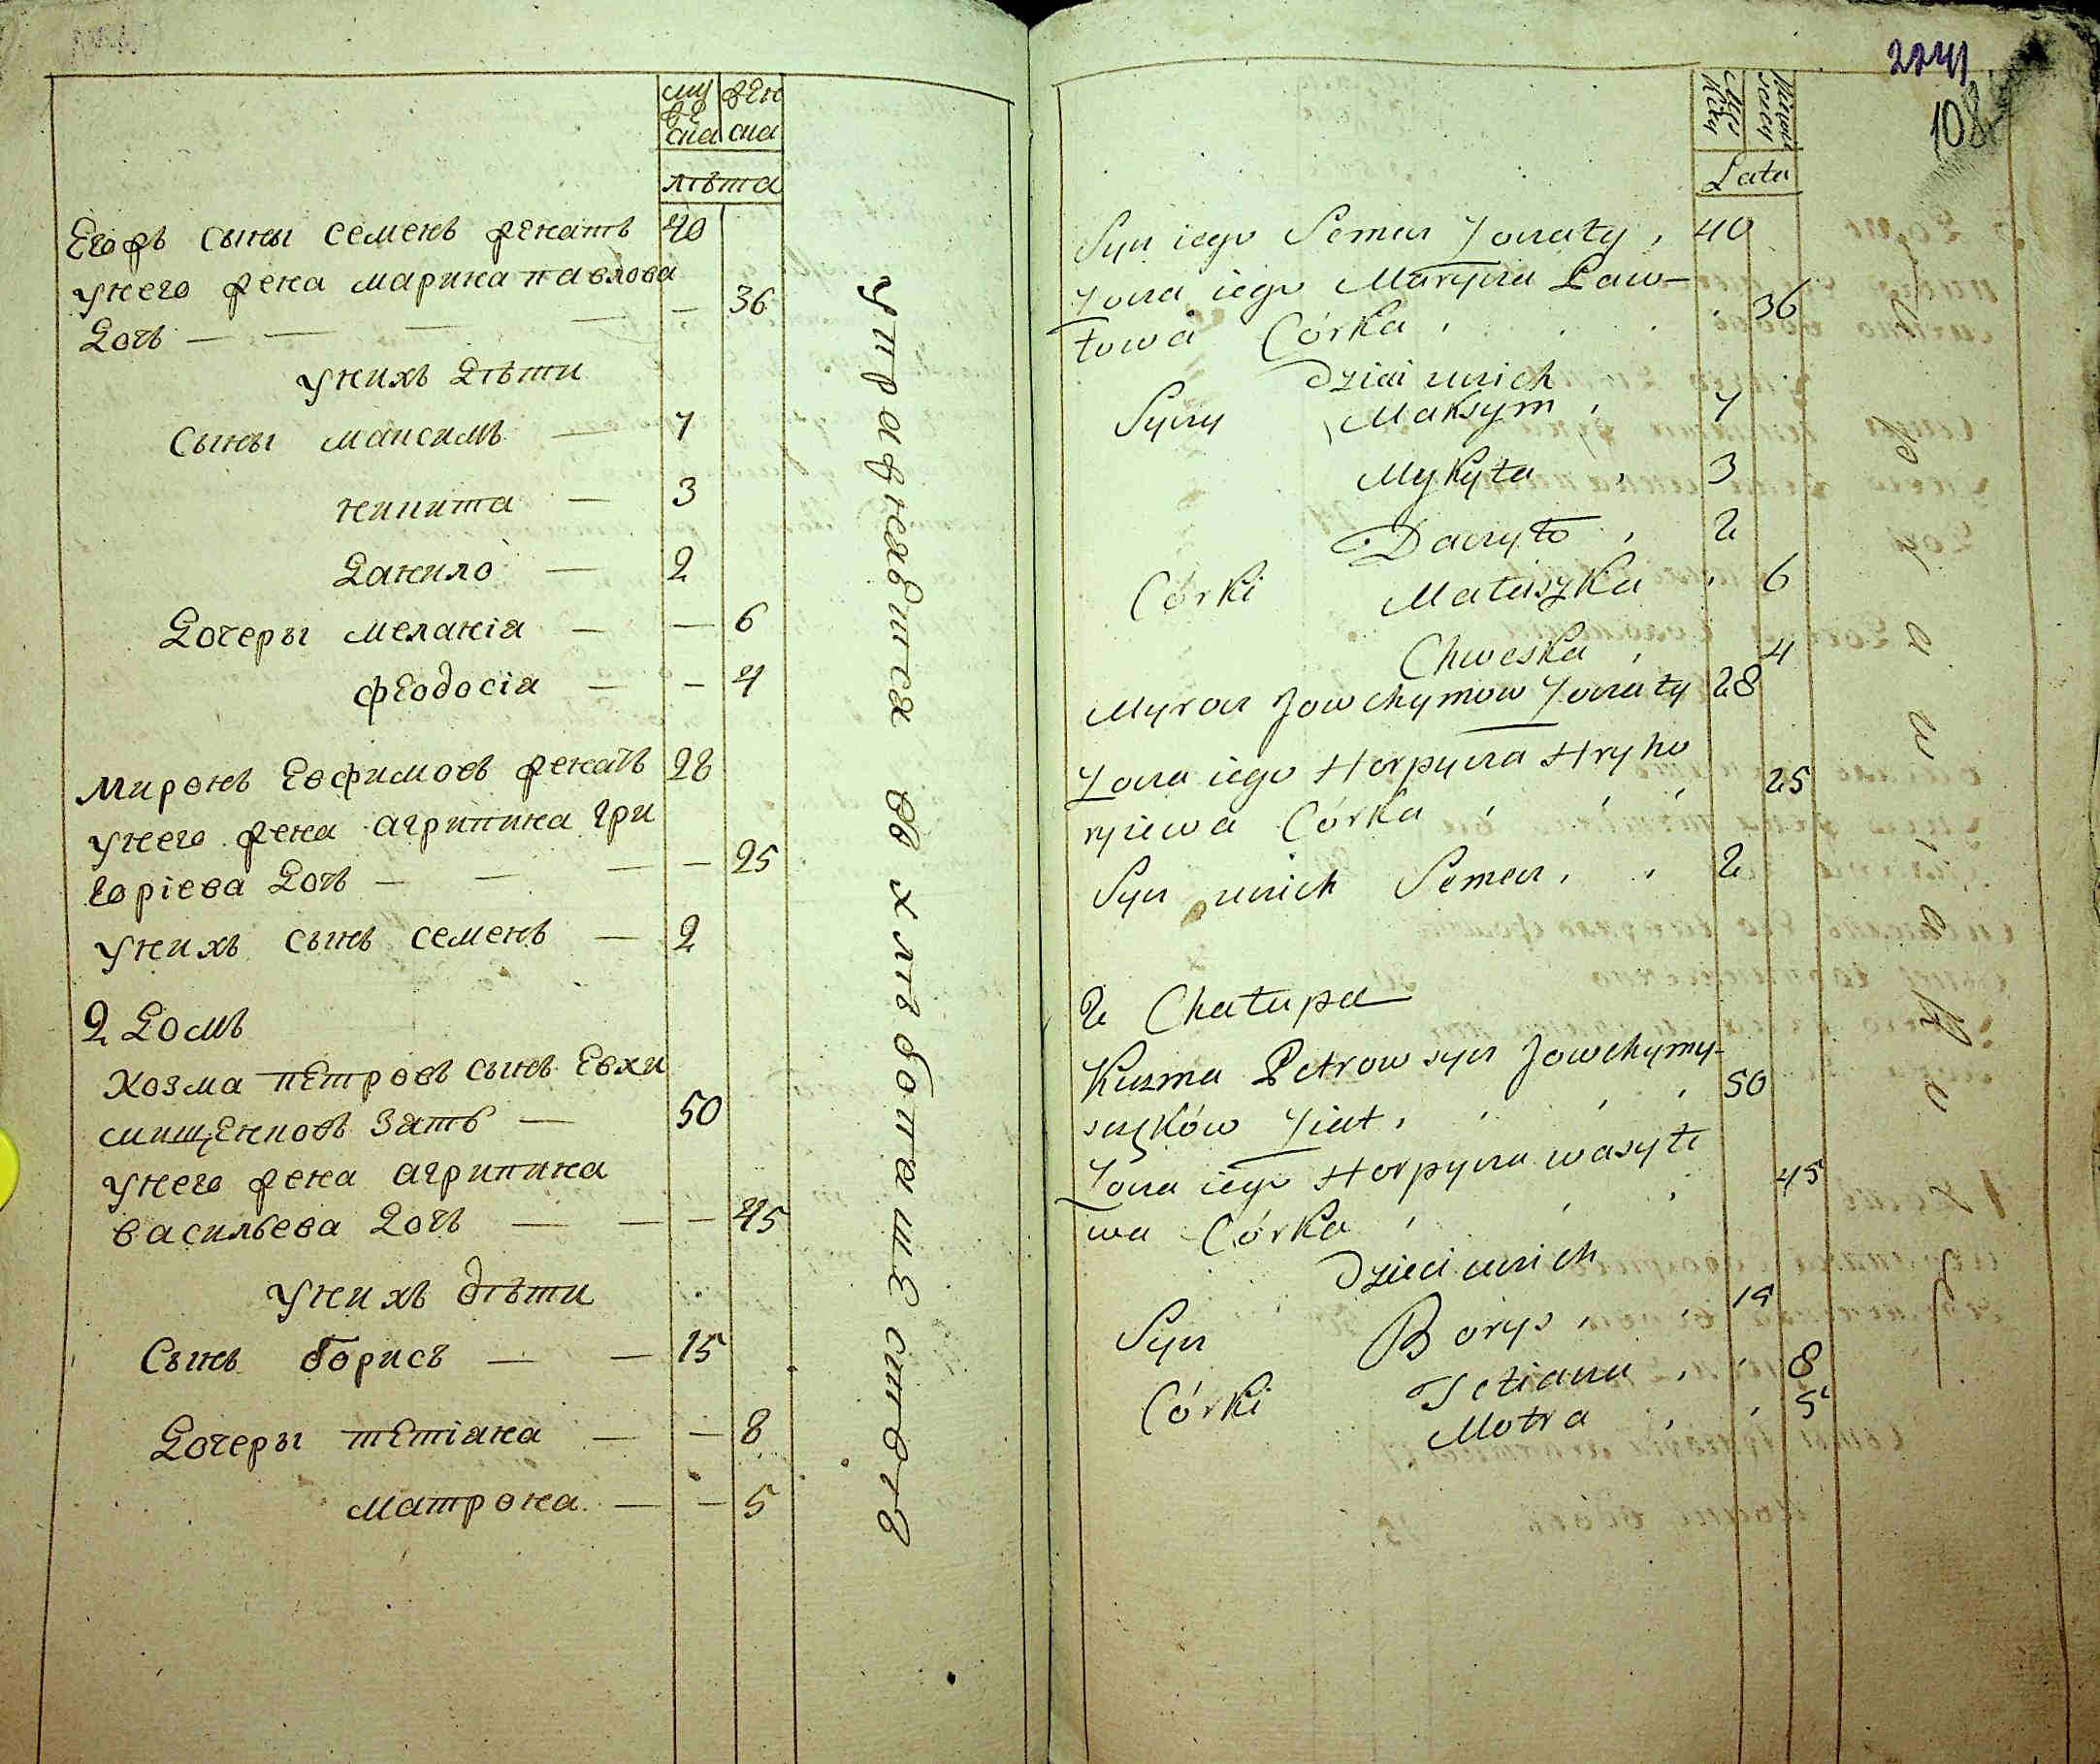 му
же
ска
жен
ска
лѣта
Егоръ сыны семенъ женатъ 40
унего жена марина павлова
Дочь — — — — — 36
унихъ Дѣти
Сыны максимъ — 7
никита — 3
Данило — 2
Дочеры меланіа — — 6
феодосіа — — 4
Миронъ Евфимовъ женатъ 28
унего жена агрипина Гри
горіева Дочь — — — — 25
унихъ сынъ семенъ — 2
2 Домъ
Козма петровъ сынъ Евхи
мищенковъ Зять — 50
унего жена агрипина
васильева Дочь — — — 45
унихъ дѣти
Сынъ борисъ — — 15
Дочеры тетіана — — 8
матрона — — 5
упражняются въ хлѣбопашествѣ
2241
108
Męs
kiey
Lata
Syn iego Semen żonaty, 40
żona iego Maryna Paw-
łowa Córka , . . . 36
Dzieci unich
Syny Maksym , 7
Mykyta , 3
Danyło , 2
Córki Matiaszka , 6
Chweska , 4
Myron Jowchymow żonaty 28
żona iego Horpyna Hryho
ryiewa Córka , , , 25
Syn unich Semen , , 2
2 Chałupa
Kuzma Petrow syn Jowchymy-
szyków żiat , , , , 50
żona iego Horpyna wasyłi
wa Córka , , , 45
Dzieci unich
Syn Borys , , 15
Córki Tetiana , , 8
Motra , , 5